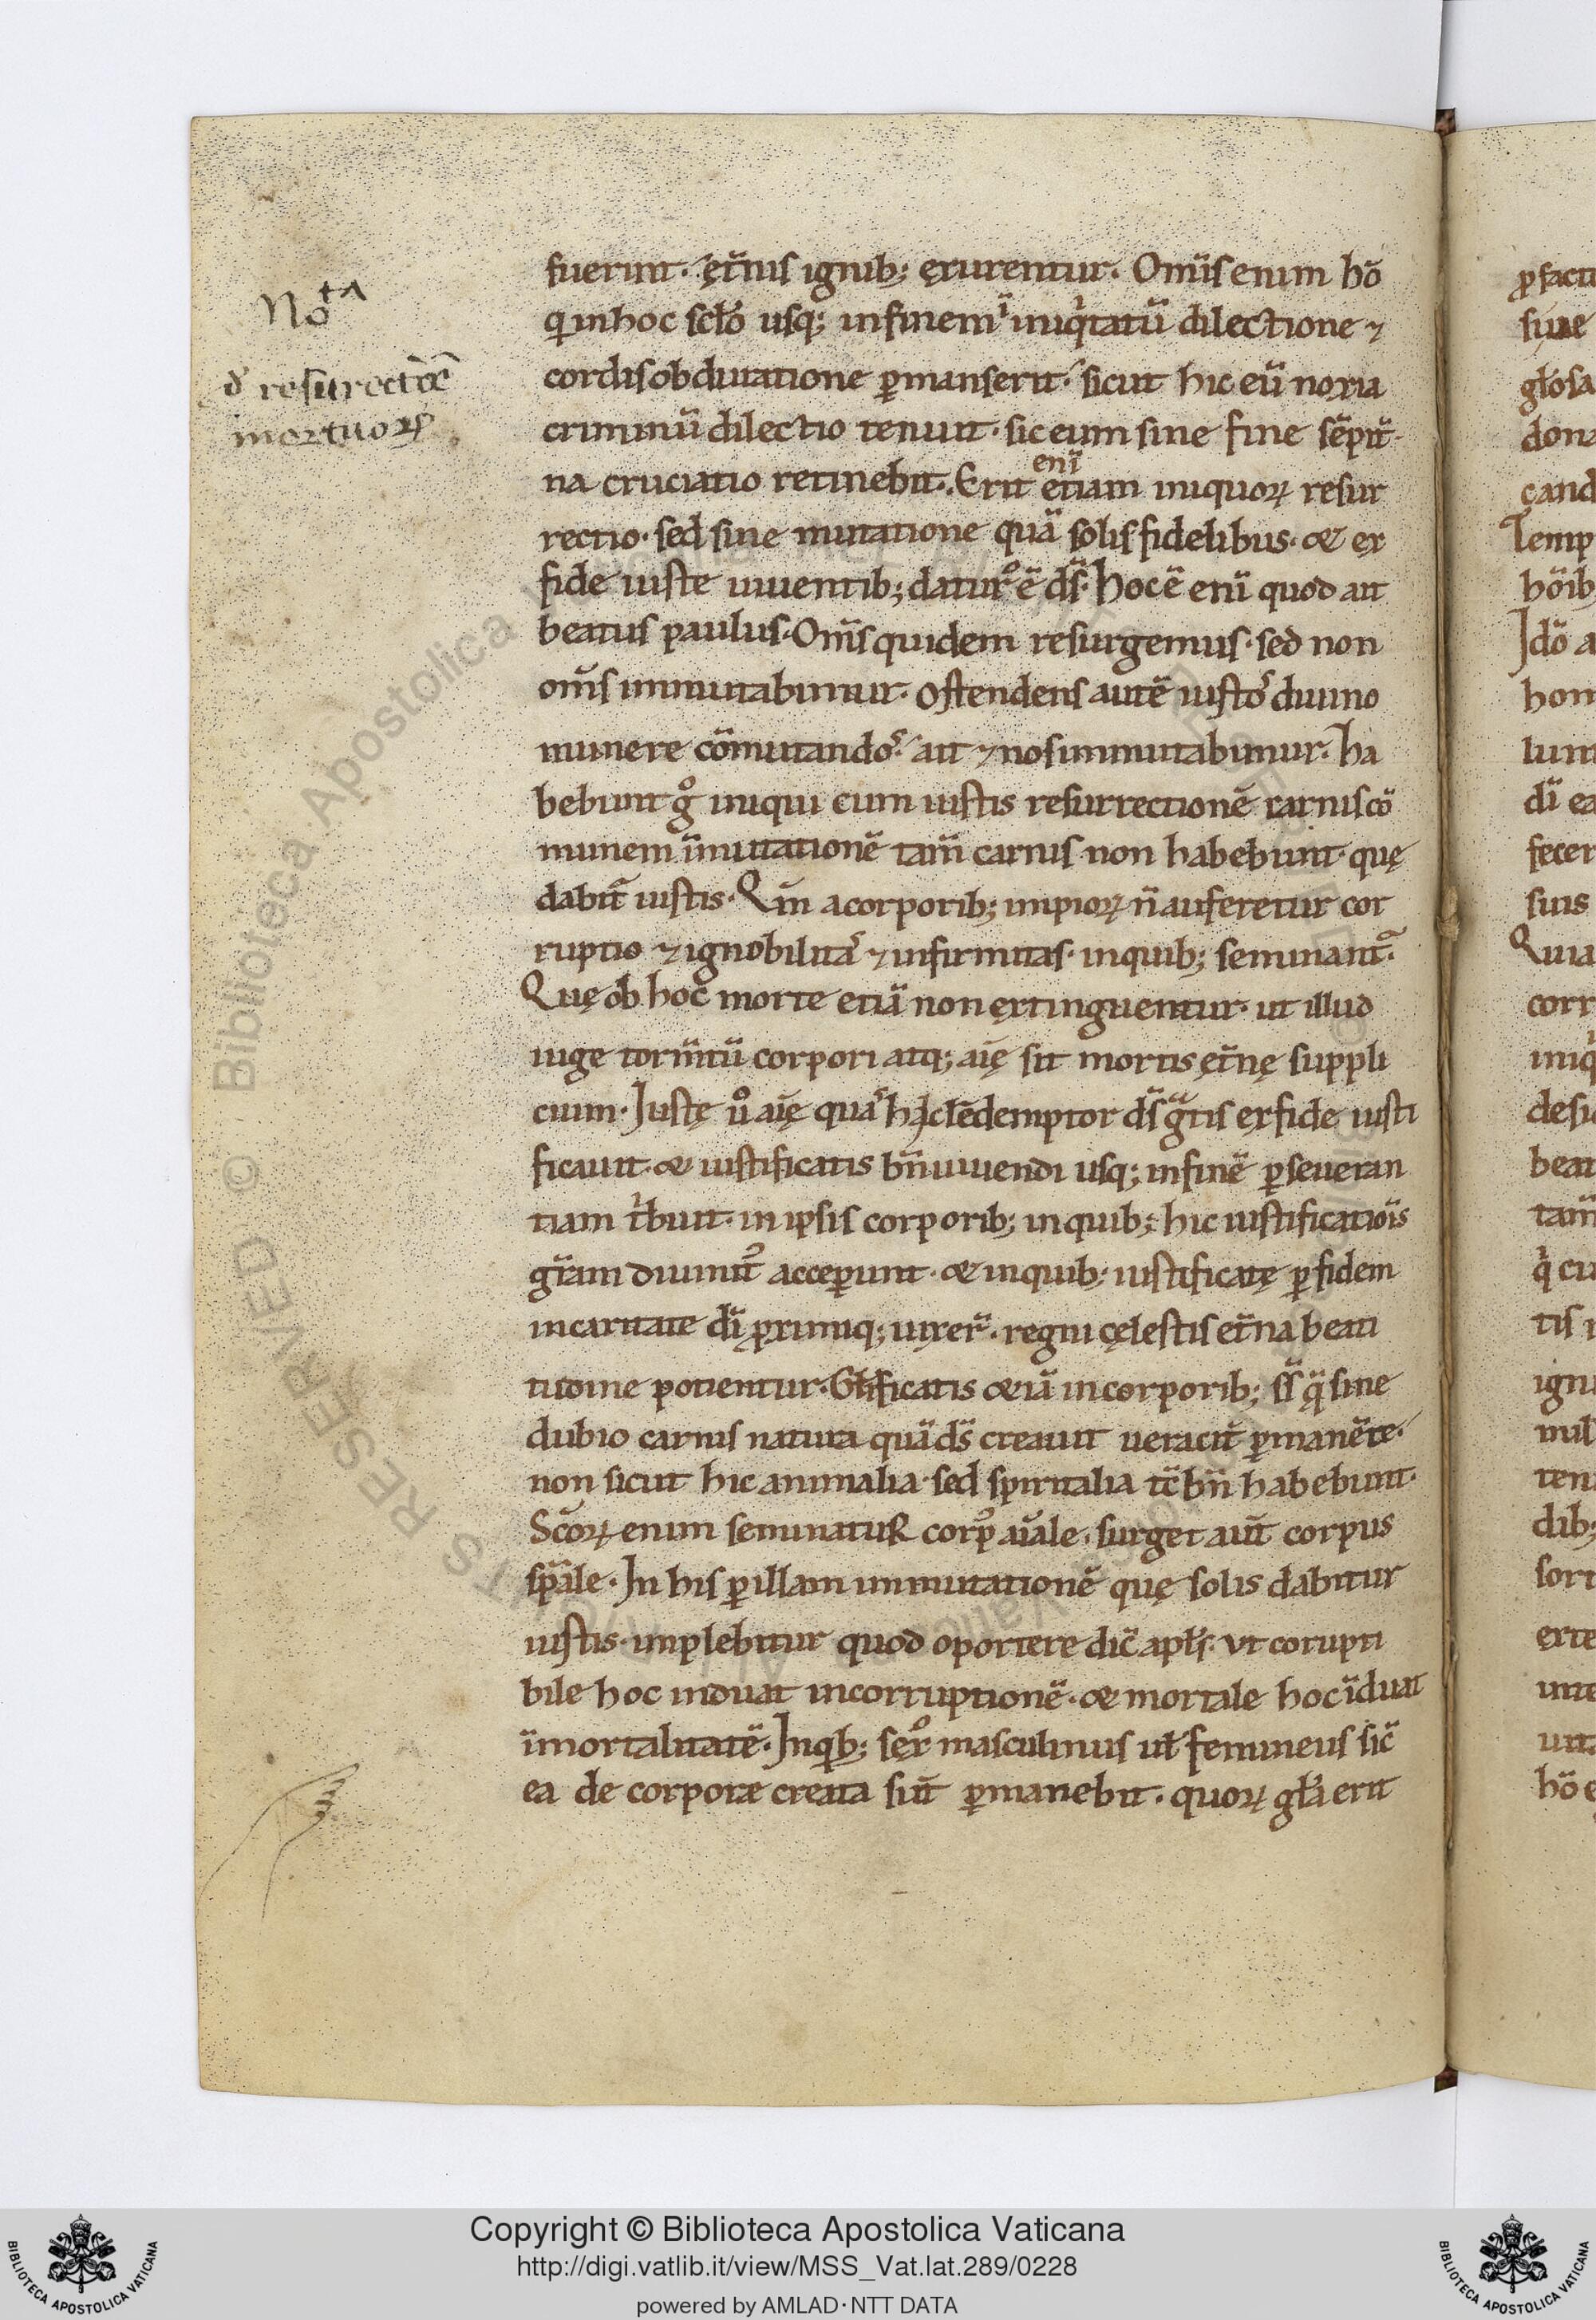 Nota
d' resurrectõe
mortuoꝝ
fuerint· ęt̄nis ignib; exurentur· Om̄is enim hō
qui in hoc sc̄lo usq; in finem iniqͥtatū dilectione ⁊
cordis obduratione ꝑmanserit· sicut hic eū noxia
criminū dilectio tenuit· sic eum sine fine sēpit̄
na cruciatio retinebit. Erit etiam iniquoꝝ resur
enī
rectio· sed sine mutatione quā solis fidelibus· & ex
fide iuste uiuentib; daturꝰ ē ds̄· hoc ē enī quod ait
beatus paulus· Om̄s quidem resurgemus· sed non
om̄s inmutabimur· ostendens autē iustoˢ diuino
munere cōmutandoˢ· ait ⁊ nos inmutabimur· ha
bebunt gͦ iniqui cum iustis resurrectionē carnis cō
munem īmutationē tam̄ carnis non habebunt· quę
dabit̄ iustis· Qm̄ a corporib; impioꝝ n̄ auferetur cor
ruptio ⁊ ignobilitaˢ ⁊ infirmitas· in quib; seminant̄·
Quę ob hoc morte etiā non extinguentur· ut illud
iuge torm̄tū corpori atq; aīę sit mortis ęt̄nę suppli
cium· Iustę ū aīę quaˢ redemptor ds̄ gᵃtis ex fide iusti
ficauit· & iustificatis bn̄ uiuendi usq; in finē ꝑseueran
tiam tͥbuit· in ipsis corporib; in quib; hic iustificatiōis
gr̄am diuinit̄ acceꝑunt· & in quib; iustificatę ꝑ fidem
in caritate dī proximiq; uixer̄· regni cęlestis et̄na beati
tudine potientur· Gl̄ificatis & iā in corporib; ss̄ q̄ sine
dubio carnis natura quā ds̄ creauit ueracit̄ ꝑmanēte·
non sicut hic animalia· sed spiritalia tc̄ bn̄ habebunt·
Sc̄oꝝ enim seminatuR corpꝰ aīale· surget aūt corpus
sp̄ale· In his ꝑ illam inmutationē quę solis dabitur
iustis· implebitur quod oportere dic̄ apl̄s· ut corupti
bile hoc induat incorruptionē· & mortale hoc īduat
īmortalitatē· In qͥb; sexꝰ masculinus ut̄ femineus sic̄
ea de corpora creata sūt ꝑmanebit· quoꝝ gl̄a erit
Copyright © Biblioteca Apostolica Vaticana
http://digi.vatlib.it/view/MSS_Vat.lat.289/0228
powered by AMLAD·NTT DATA
BIBLIOTECA APOSTOLICA VATICANA
BIBLIOTECA APOSTOLICA VATICANA